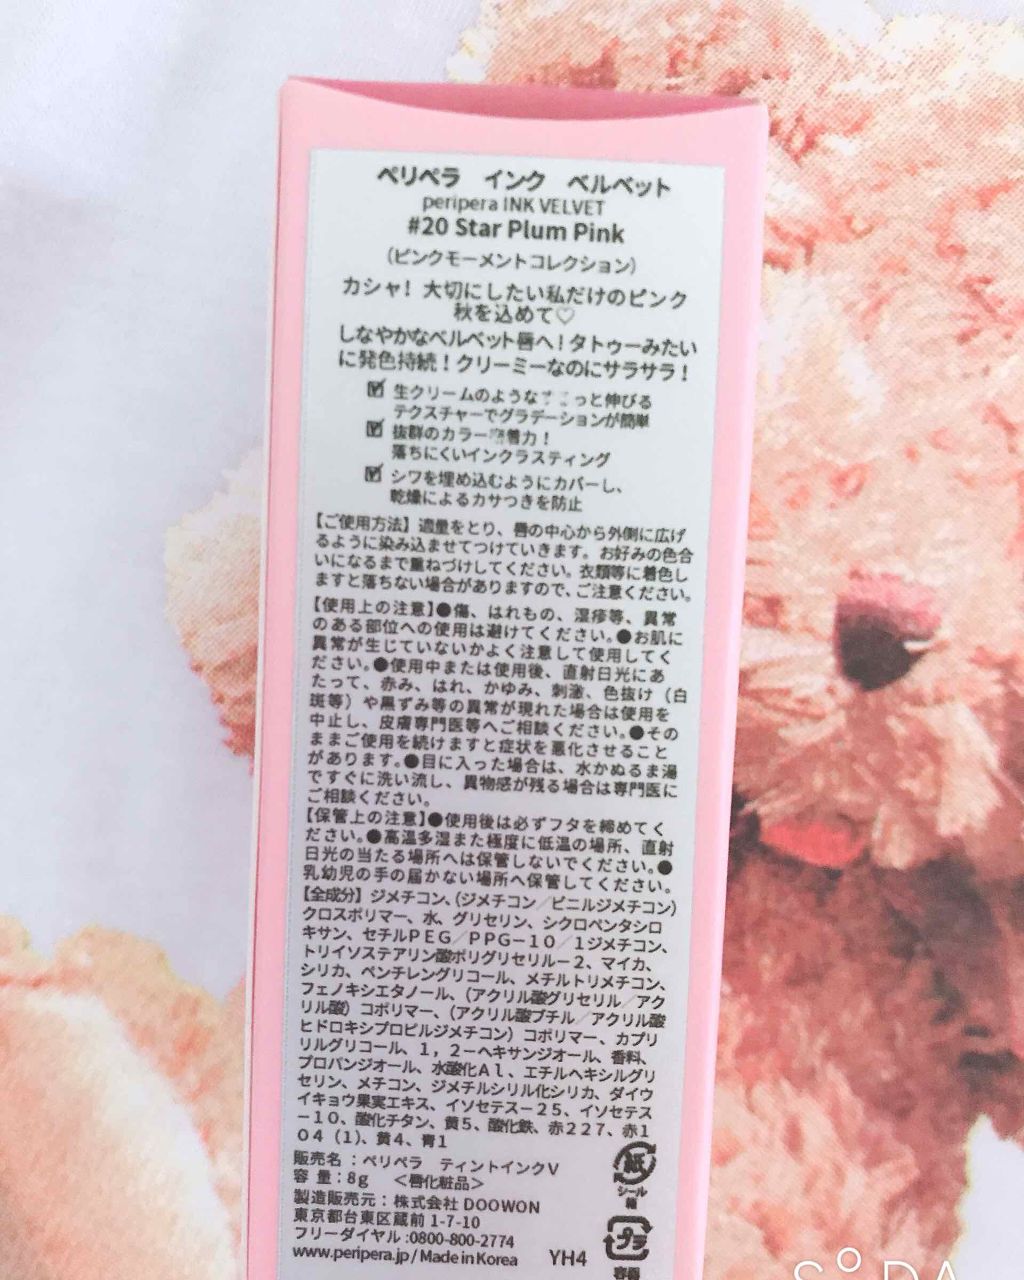 ペリペラ インク ベルベット
peripera INK VELVET
#20 Star Plum Pink
（ピンクモーメントコレクション）
カシャ！大切にしたい私だけのピンク
秋を込めて♡
しなやかなベルベット唇へ！タトゥーみたい
に発色持続！クリーミーなのにサラサラ！
☑ 生クリームのような っと伸びる
テクスチャーでグラデーションが簡単
☑ 抜群のカラー密着力！
落ちにくいインクラスティング
☑ シワを埋め込むようにカバーし、
乾燥によるカサつきを防止
【ご使用方法】適量をとり、唇の中心から外側に広げ
るように染み込ませてつけていきます。お好みの色合
いになるまで重ねづけしてください。衣類等に着色し
ますと落ちない場合がありますので、ご注意ください。
【使用上の注意】●傷、はれもの、湿疹等、異常
のある部位への使用は避けてください。●お肌に
異常が生じていないかよく注意して使用してく
ださい。●使用中または使用後、直射日光にあ
たって、赤み、はれ、かゆみ、刺激、色抜け（白
斑等）や黒ずみ等の異常が現れた場合は使用を
中止し、皮膚専門医等へご相談ください。●その
ままご使用を続けますと症状を悪化させること
があります。●目に入った場合は、水かぬるま湯
ですぐに洗い流し、異物感が残る場合は専門医に
ご相談ください。
【保管上の注意】●使用後は必ずフタを締めてく
ださい。●高温多湿また極度に低温の場所、直射
日光の当たる場所へは保管しないでください。●
乳幼児の手の届かない場所へ保管してください。
【全成分】ジメチコン、（ジメチコン／ビニルジメチコン）
クロスポリマー、水、グリセリン、シクロペンタシロ
キサン、セチルＰＥＧ／ＰＰＧ－１０／１ジメチコン、
トリイソステアリン酸ポリグリセリル－２、マイカ、
シリカ、ペンチレングリコール、メチルトリメチコン、
フェノキシエタノール、（アクリル酸グリセリル／アク
リル酸）コポリマー、（アクリル酸ブチル／アクリル酸
ヒドロキシプロピルジメチコン）コポリマー、カプリ
リルグリコール、１，２－ヘキサンジオール、香料、
プロパンジオール、水酸化Ａｌ、エチルヘキシルグリ
セリン、メチコン、ジメチルシリル化シリカ、ダイウ
イキョウ果実エキス、イソセテス－２５、イソセテス
－１０、酸化チタン、黄５、酸化鉄、赤２２７、赤１
０４（１）、黄４、青１
販売名：ペリペラ ティントインクＶ
容 量：8g ＜唇化粧品＞
製造販売元：株式会社 DOOWON
東京都台東区蔵前 1-7-10
フリーダイヤル:0800-800-2774
www.peripera.jp / Made in Korea YH4
紙
シール
箱
プラ
容器